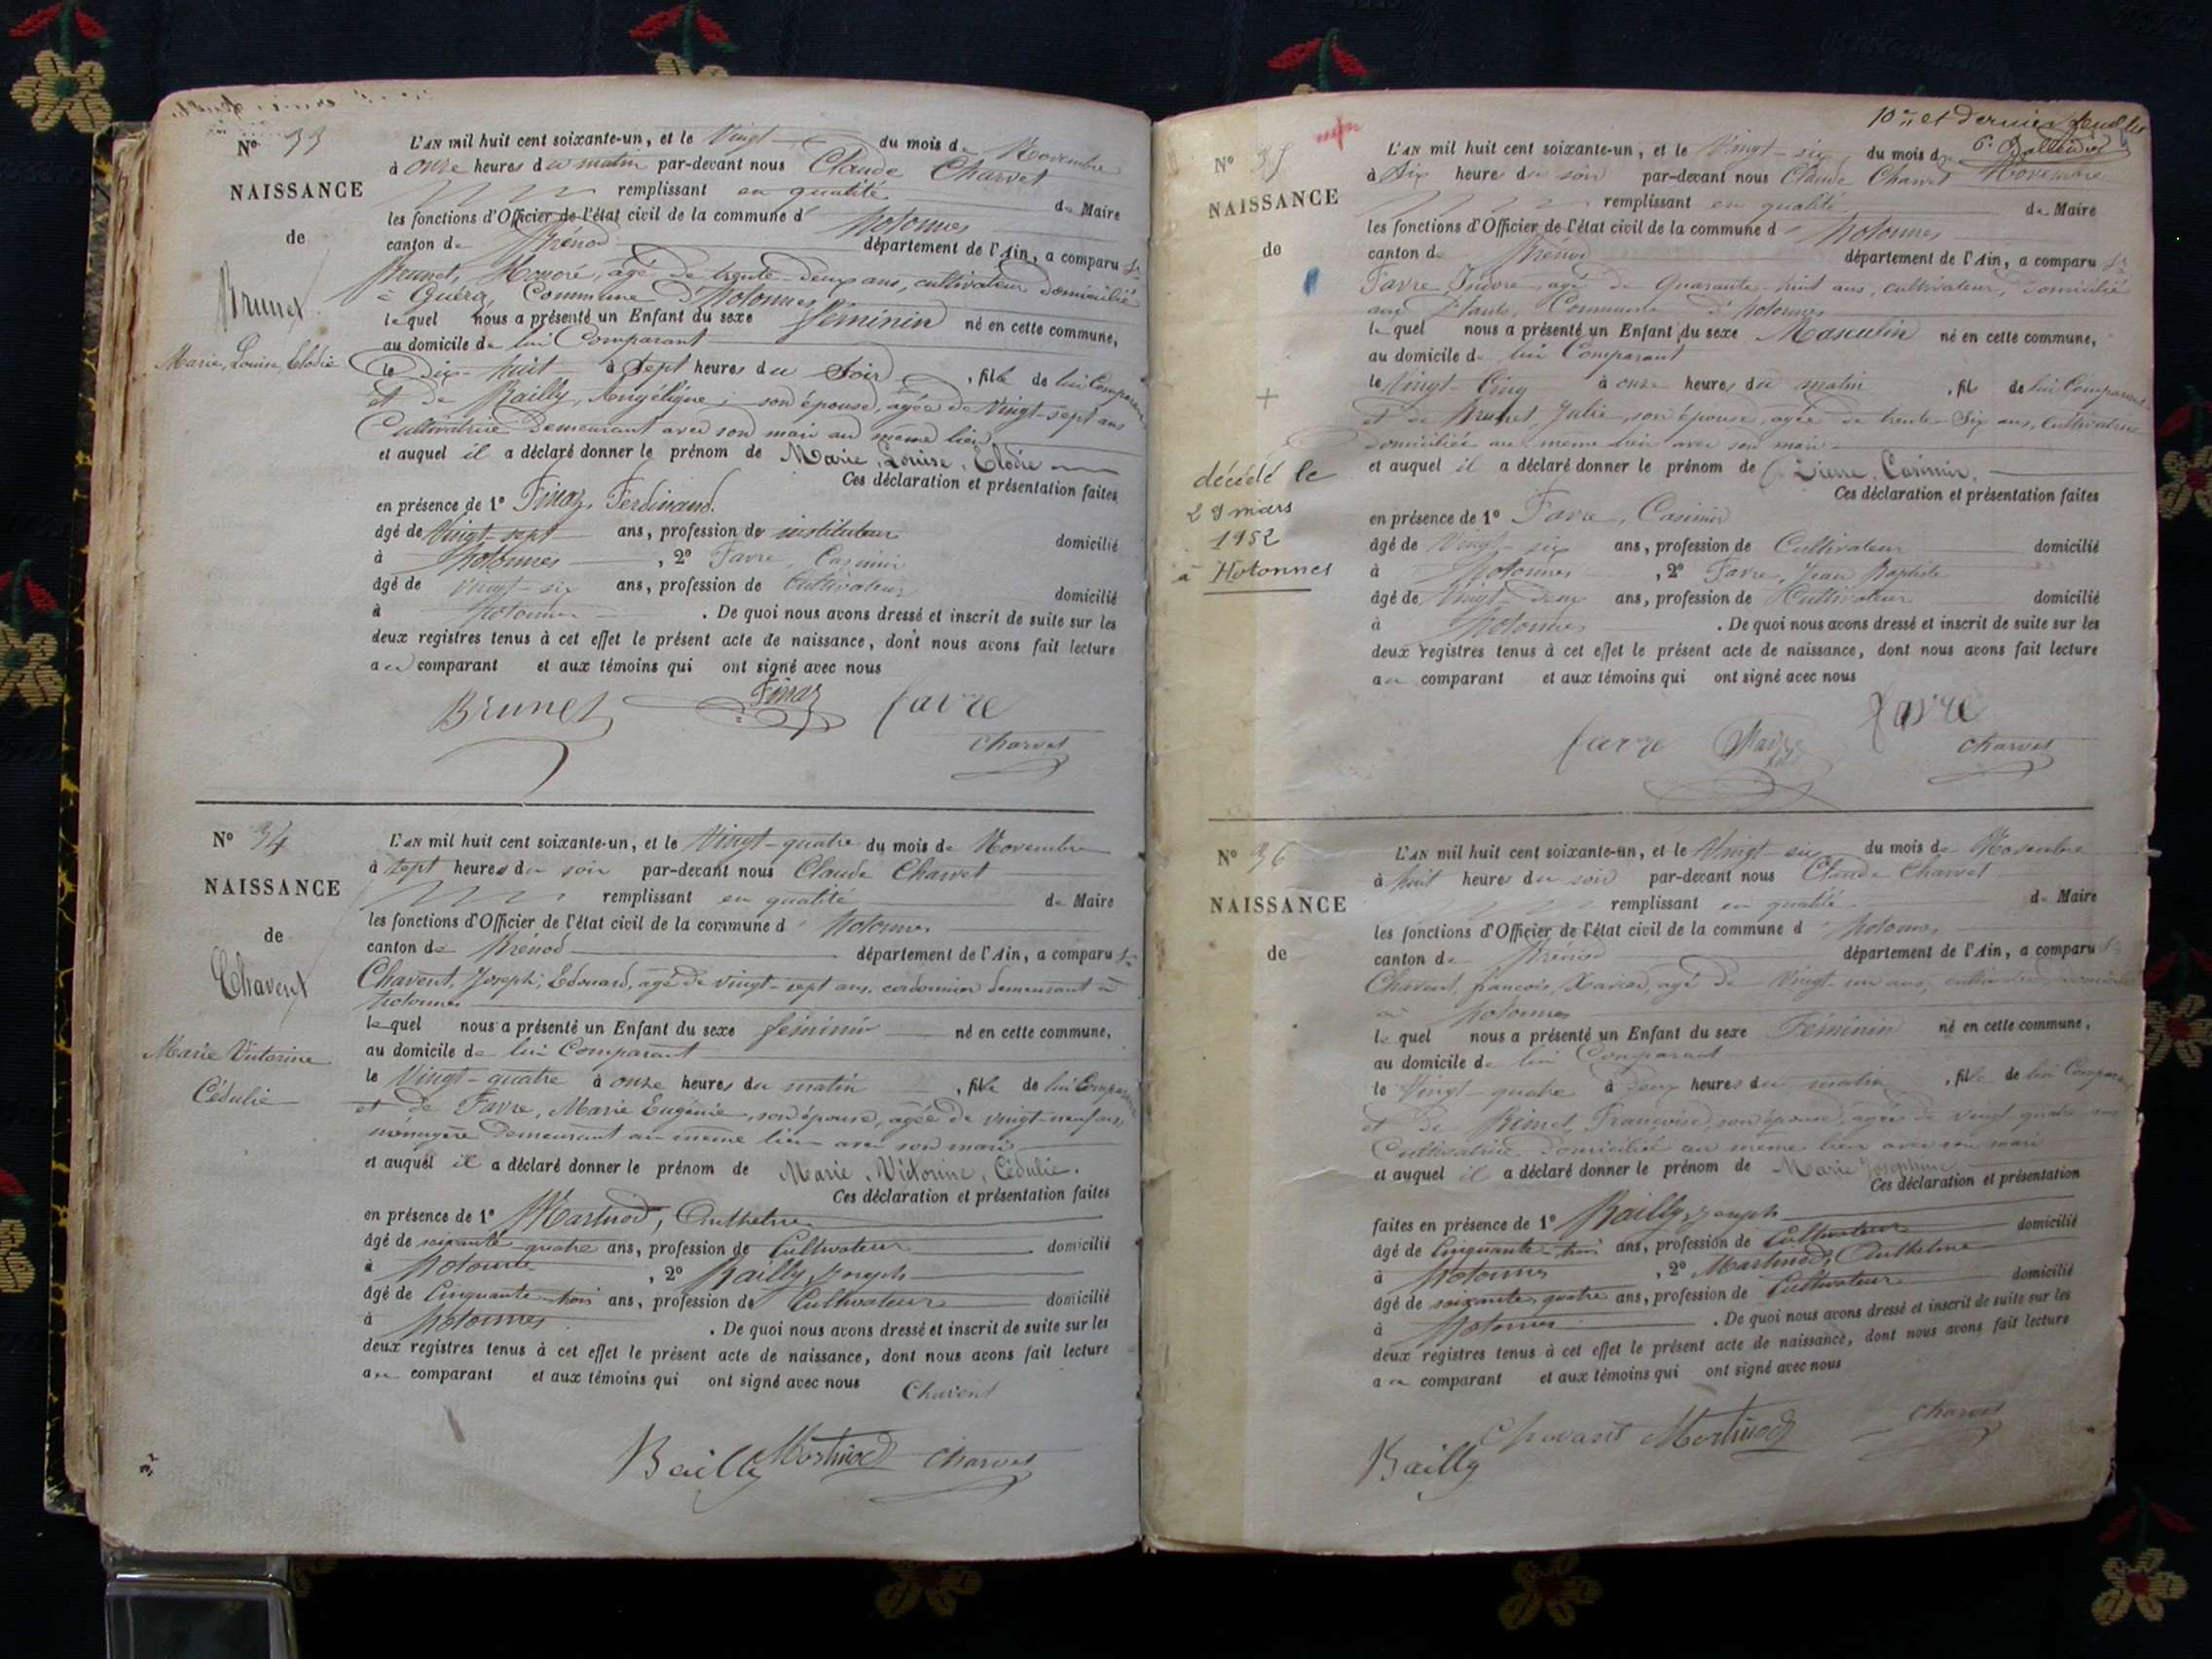 Nº 33
NAISSANCE
de
Brunet
Marie, Louise, Elodie
L'AN mil huit cent soixante-un, et le Vingt du mois de Novembre
à onze heures du matin par-devant nous Claude Charvet
remplissant en qualité de Maire
les fonctions d'Officier de l'état civil de la commune d' hotonnes
canton de Brénod département de l'Ain, a comparu
Brunet, Honoré, âgé de trente-deux ans, cultivateur domicilié
à Commune d'hotonnes
lequel nous a présenté un Enfant du sexe féminin né en cette commune,
au domicile de lui Comparant
le dix-huit à sept heures du Soir, fille de lui Comparant
et de Bailly, Angélique, son épouse, agée de Vingt-sept ans
Cultivatrice Demeurant avec son mari au même lieu
et auquel il a déclaré donner le prénom de Marie, Louise, Elodie
Ces déclaration et présentation faites
en présence de 1º Finaz, Ferdinand.
âgé de Vingt-sept ans, profession de instituteur domicilié
à hotonnes, 2º Favre, Casimir
âgé de vingt-six ans, profession de Cultivateur domicilié
à hotonnes. De quoi nous avons dressé et inscrit de suite sur les
deux registres tenus à cet effet le présent acte de naissance, dont nous avons fait lecture
au comparant et aux témoins qui ont signé avec nous
Brunet Finaz favre
Charvet
Nº 34
NAISSANCE
de
Chavent
Marie Victorine
Cédulie
L'AN mil huit cent soixante-un, et le Vingt-quatre du mois de Novembre
à sept heures du soir par-devant nous Claude Charvet
remplissant en qualité de Maire
les fonctions d'Officier de l'état civil de la commune d' hotonnes
canton de Brénod département de l'Ain, a comparu
Chavent, Joseph, Edouard, agé de vingt-sept ans, cordonnier demeurant à
hotonnes
lequel nous a présenté un Enfant du sexe féminin né en cette commune,
au domicile de lui Comparant
le Vingt-quatre à onze heures du matin, fille de lui Comparant
et de Favre, Marie Eugénie, son épouse, agée de vingt-neuf ans,
ménagère demeurant au même lieu avec son mari
et auquel il a déclaré donner le prénom de Marie, Victorine, Cédulie.
Ces déclaration et présentation faites
en présence de 1º Martinod, Anthelme
âgé de soixante-quatre ans, profession de Cultivateur domicilié
à hotonne, 2º Bailly, Joseph
âgé de Cinquante-trois ans, profession de Cultivateur domicilié
à hotonnes. De quoi nous avons dressé et inscrit de suite sur les
deux registres tenus à cet effet le présent acte de naissance, dont nous avons fait lecture
au comparant et aux témoins qui ont signé avec nous
Chavent
Bailly Martinod Charvet
10me et dernier feuillet
Nº 35
NAISSANCE
de
décédé le
29 mars
1952
à Hotonnes
L'AN mil huit cent soixante-un, et le Vingt-six du mois de Novembre
à Six heures du soir par-devant nous Claude Charvet
remplissant en qualité de Maire
les fonctions d'Officier de l'état civil de la commune d' hotonnes
canton de Brénod département de l'Ain, a comparu
Favre, Isidore, agé de Quarante-huit ans, cultivateur, domicilié
aux Plans, Commune d'hotonnes
lequel nous a présenté un Enfant du sexe Masculin né en cette commune,
au domicile de lui Comparant
le Vingt-Cinq à onze heures du matin, fils de lui Comparant
et de Brunet, Julie, son épouse, agée de trente-Six ans, Cultivatrice
domiciliée au même lieu avec son mari
et auquel il a déclaré donner le prénom de Pierre, Casimir,
Ces déclaration et présentation faites
en présence de 1º Favre, Casimir
âgé de Vingt-six ans, profession de Cultivateur domicilié
à hotonnes, 2º Favre, Jean Baptiste
âgé de Vingt-deux ans, profession de Cultivateur domicilié
à hotonnes. De quoi nous avons dressé et inscrit de suite sur les
deux registres tenus à cet effet le présent acte de naissance, dont nous avons fait lecture
au comparant et aux témoins qui ont signé avec nous
favre
favre Favre Charvet
Nº 36
NAISSANCE
de
L'AN mil huit cent soixante-un, et le Vingt-six du mois de Novembre
à huit heures du soir par-devant nous Claude Charvet
remplissant en qualité de Maire
les fonctions d'Officier de l'état civil de la commune d' hotonnes
canton de Brénod département de l'Ain, a comparu
Chavent, françois, Xavier, agé de Vingt-un ans, cultivateur domicilié
à hotonnes
lequel nous a présenté un Enfant du sexe Féminin né en cette commune,
au domicile de lui Comparant
le Vingt-quatre à deux heures du matin, fille de lui Comparant
et de Françoise, son épouse, agée de vingt quatre ans
Cultivatrice domiciliée au même lieu avec son mari
et auquel il a déclaré donner le prénom de Marie Josephine
Ces déclaration et présentation
faites en présence de 1º Bailly, Joseph
âgé de Cinquante-trois ans, profession de Cultivateur domicilié
à hotonnes, 2º Martinod, Anthelme
âgé de soixante, quatre ans, profession de Cultivateur domicilié
à hotonnes. De quoi nous avons dressé et inscrit de suite sur les
deux registres tenus à cet effet le présent acte de naissance, dont nous avons fait lecture
au comparant et aux témoins qui ont signé avec nous
Bailly Chavant Martinod Charvet